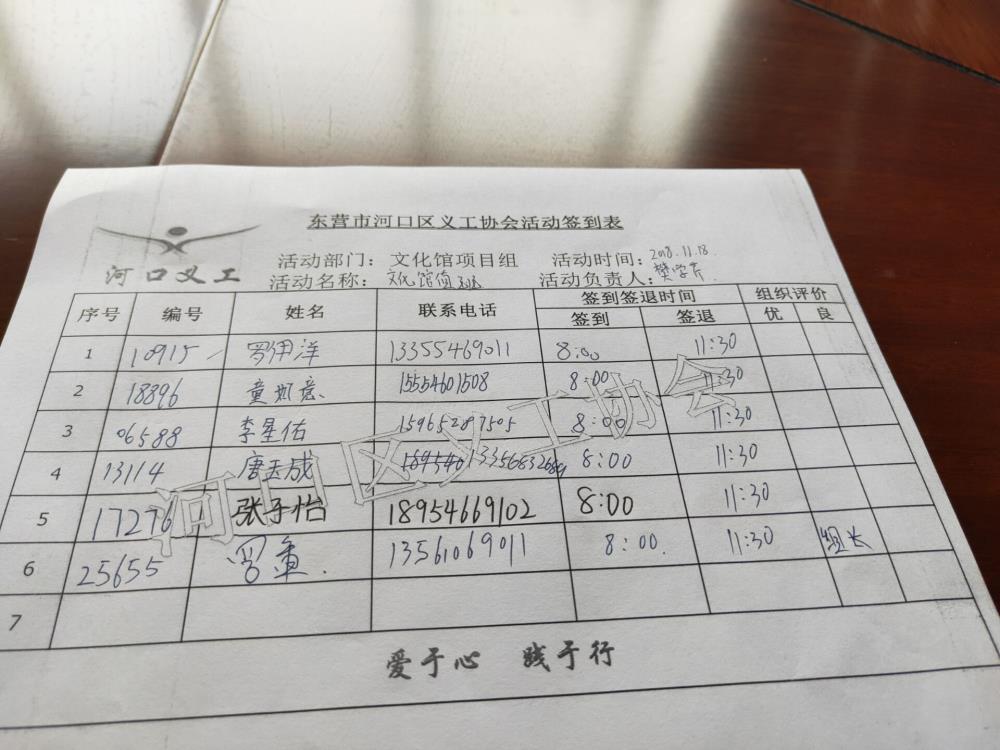 东营市河口区义工协会活动签到表
河口义工
活动部门: 文化馆项目组 活动时间: 2018.11.18.
活动名称: 文化馆值班 活动负责人:
序号 编号 姓名 联系电话 签到签退时间 组织评价
签到 签退 优 良
1 10915 罗伊洋 13355469011 8:00 11:30
2 18896 黄如意 15554601508 8:00 11:30
3 06588 李星佑 15965287505 8:00 11:30
4 13114 唐玉成 13356832689 8:00 11:30
5 17276 张子怡 18954669102 8:00 11:30
6 25655 罗重. 13561069011 8:00. 11:30 组长
7
河口区义工协会
爱于心 践于行